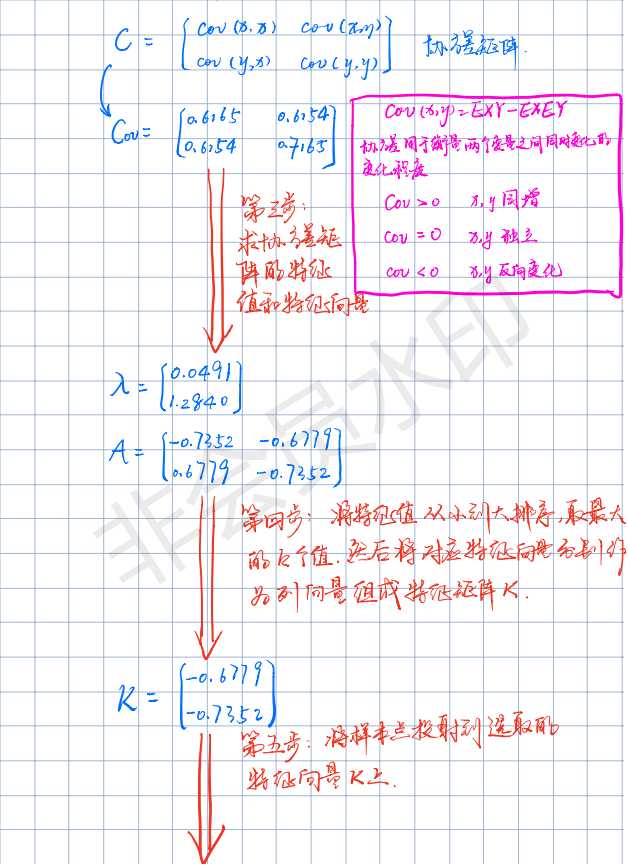 C = [cov(x,x) cov(x,y)
cov(y,x) cov(y,y)] 协方差矩阵.
Cov = [0.6165 0.6154
0.6154 0.7165]
Cov(x,y)=EXY-EXEY
协方差用于衡量两个变量之间同时变化的
变化程度
Cov>0 x,y同增
cov=0 x,y独立
cov<0 x,y反向变化
第三步:
求协方差矩
阵的特征
值和特征向量
λ = [0.0491
1.2840]
A = [-0.7352 -0.6779
0.6779 -0.7352]
第四步: 将特征值从小到大排序,取最大
的k个值.然后将对应特征向量分别作
为列向量组成特征矩阵K.
K = [-0.6779
-0.7352]
第五步: 将样本点投射到选取的
特征向量K上.
非会员水印